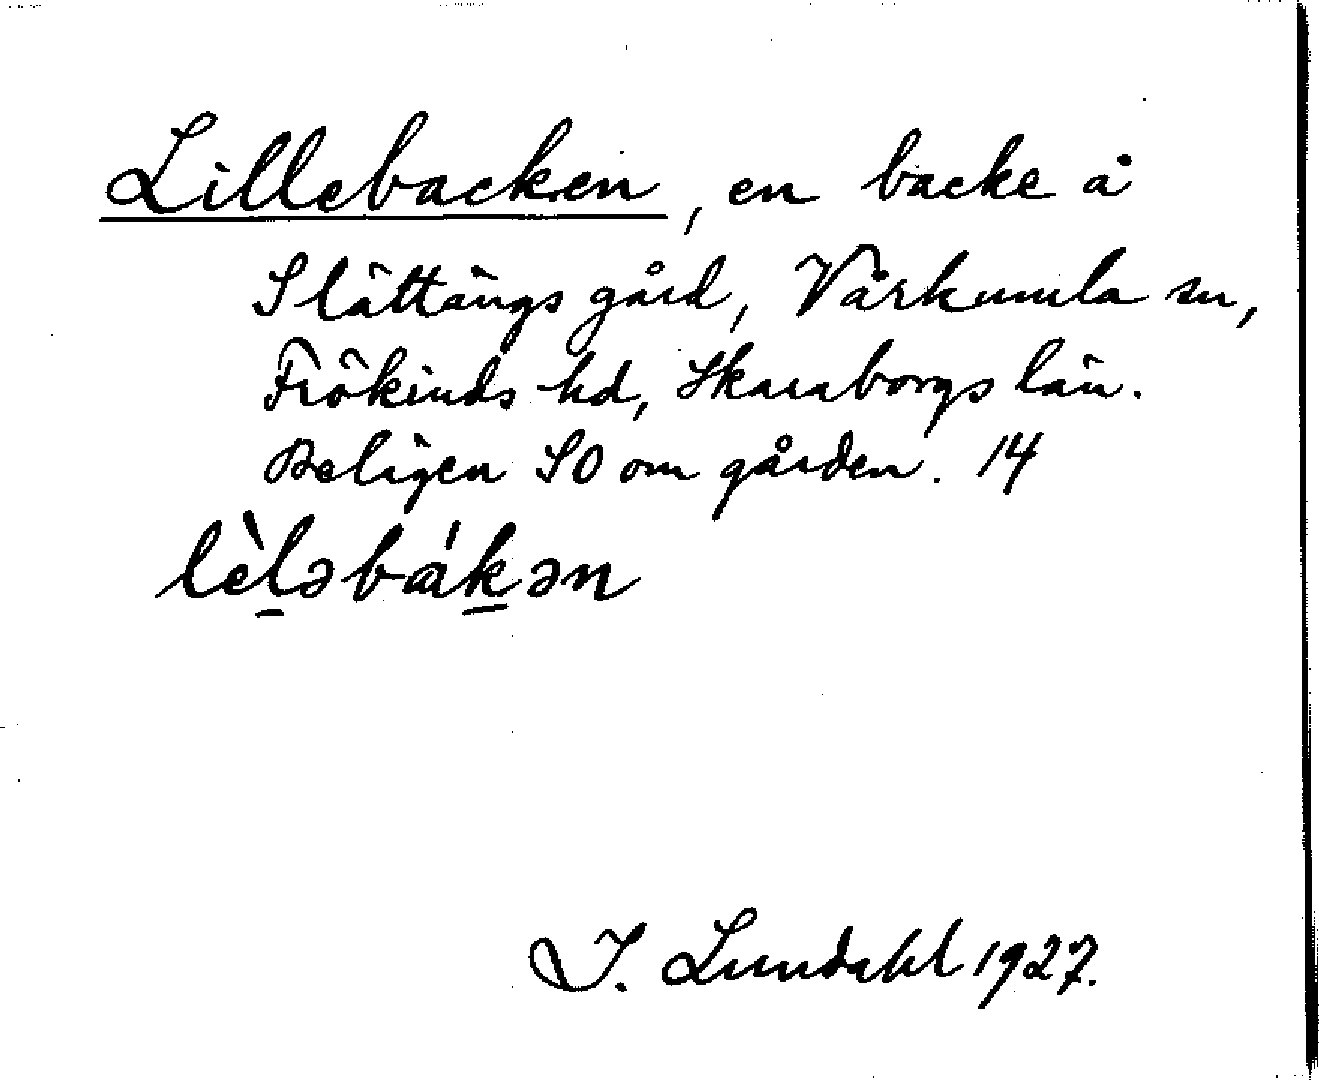 Lillebacken, en backe å
Slättängs gård, Vårkumla sn,
Frökinds hd, Skaraborgs län.
Belägen SO om gården. 14
lèl̲əbák̲ən
I. Lundahl 1927.